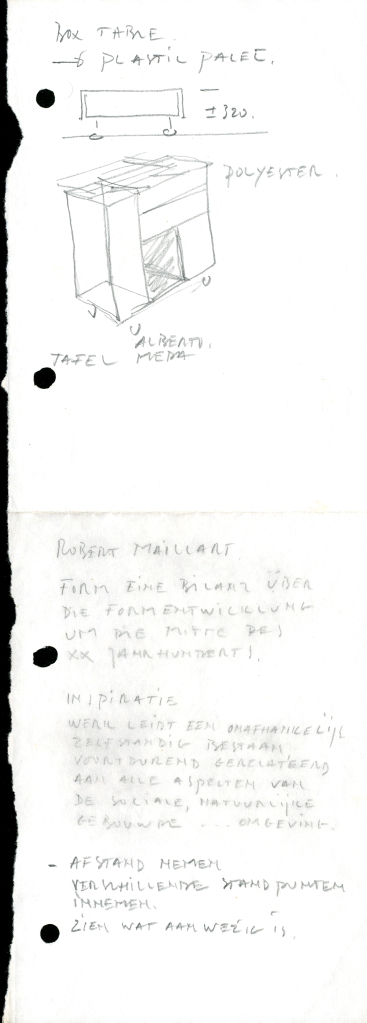 BOX TABLE.
→ PLASTIC PALET.
± 320.
POLYESTER.
ALBERTO.
TAFEL MEDA
ROBERT MAILLART
FORM EINE BILANZ ÜBER
DIE FORMENTWICKLUNG
UM DIE MITTE DES
XX JAHRHUNDERTS.
INSPIRATIE
WERK LEIDT EEN ONAFHANKELIJK
ZELFSTANDIG BESTAAN
VOORTDUREND GERELATEERD
AAN ALLE ASPECTEN VAN
DE SOCIALE, NATUURLIJKE
GEBOUWDE ... OMGEVING.
- AFSTAND NEMEN
VERSCHILLENDE STANDPUNTEN
INNEMEN.
ZIEN WAT AANWEZIG IS.